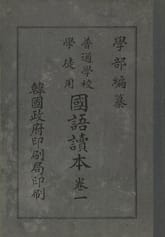 學部編纂
普通學校
學徒用
國語讀本 卷一
韓國政府印刷局印刷